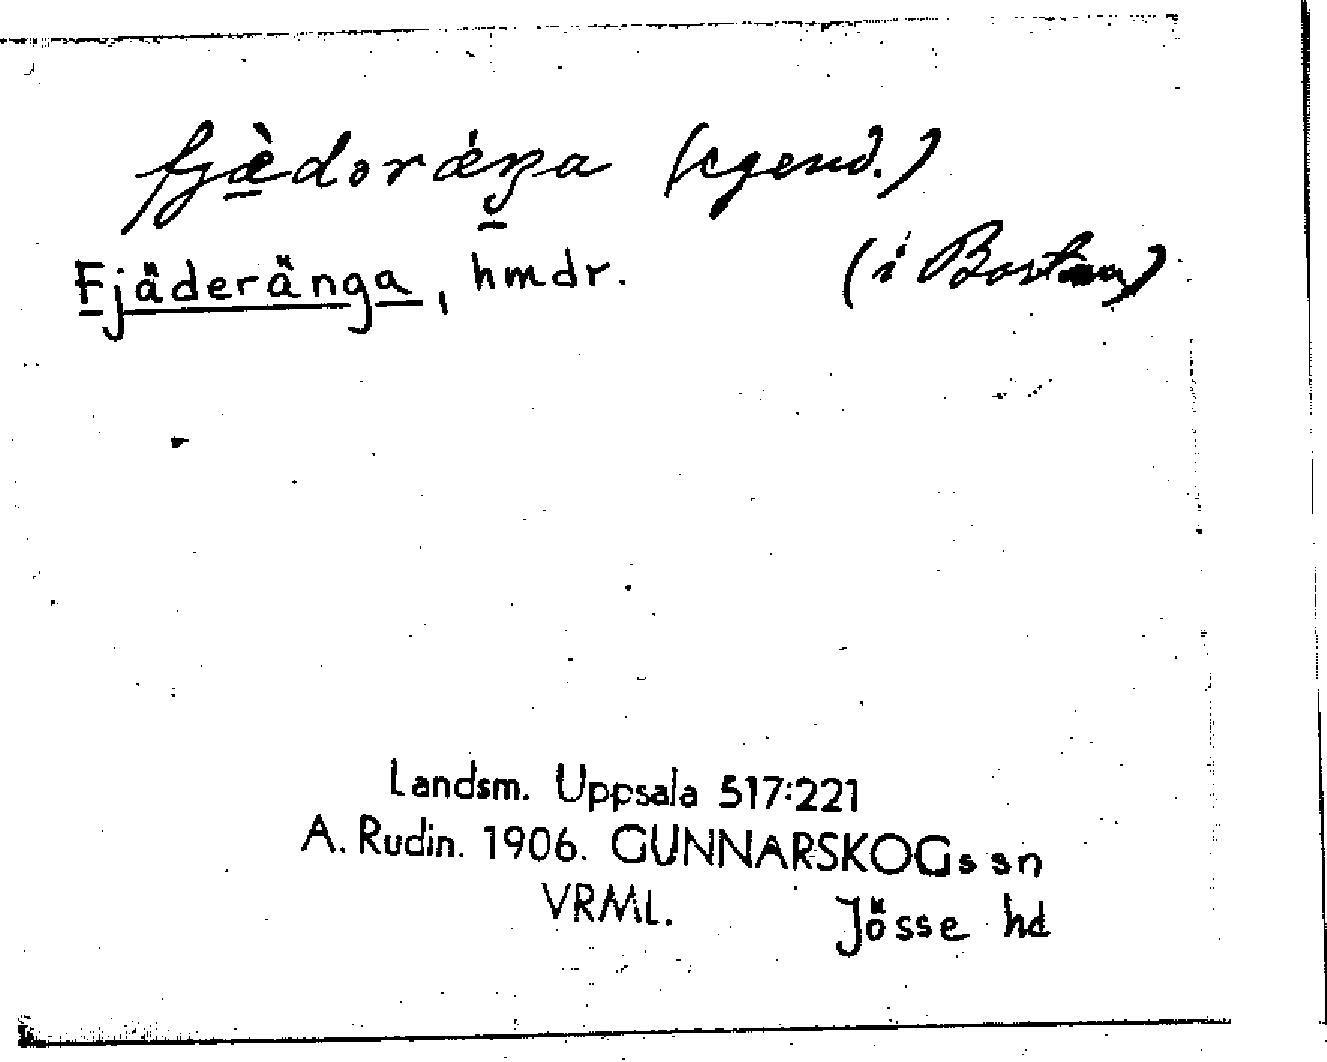 fjæ̀dərǽŋa (egend.)
Fjäderänga, hmdr. (i
Landsm. Uppsala 517:221
A. Rudin. 1906. GUNNARSKOGs sn
VRML. Jösse hd